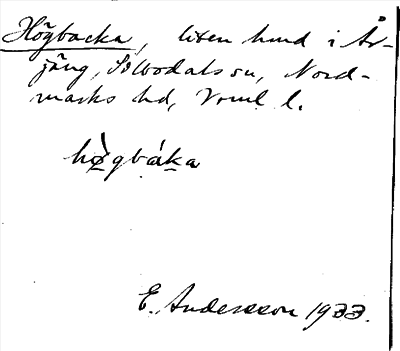 Högbacka, liten hmd i År-
jäng, Silbodals sn, Nord-
marks hd, Vrml l.
hø̀gbáka
E. Andersson 1933.